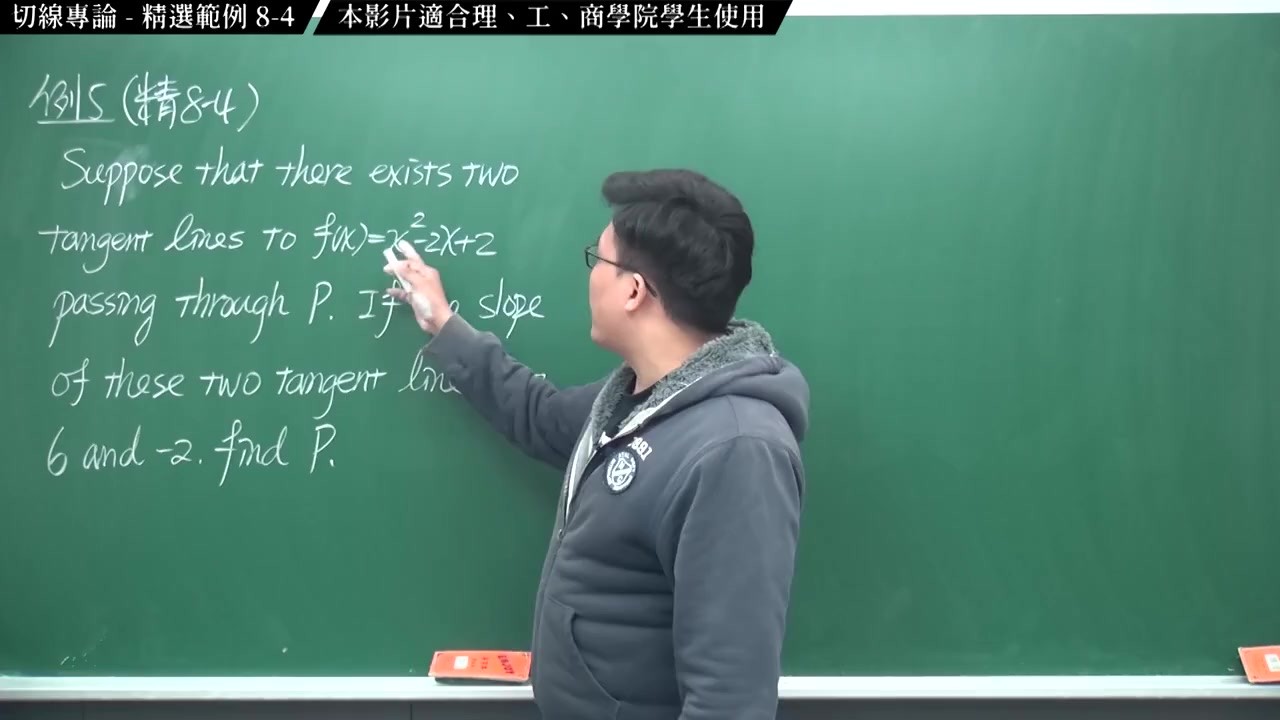 切線專論 - 精選範例 8-4
本影片適合理、工、商學院學生使用
例5 (精8-4)
Suppose that there exists two
tangent lines to f(x)=x²-2x+2
passing through P. If slope
of these two tangent
6 and -2. find P.